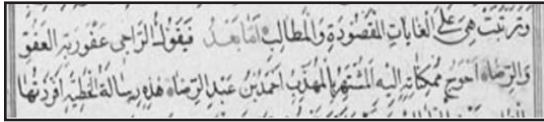 وترتبت هي على الغايات المقصودة والمطالب اما بعد فيقول الراجي عفو ربه العفو
والرضاه احوج ممكناته اليه المشتهر بالمهذب احمد بن عبد الرضاه هذه رسالة لخطية افردتها